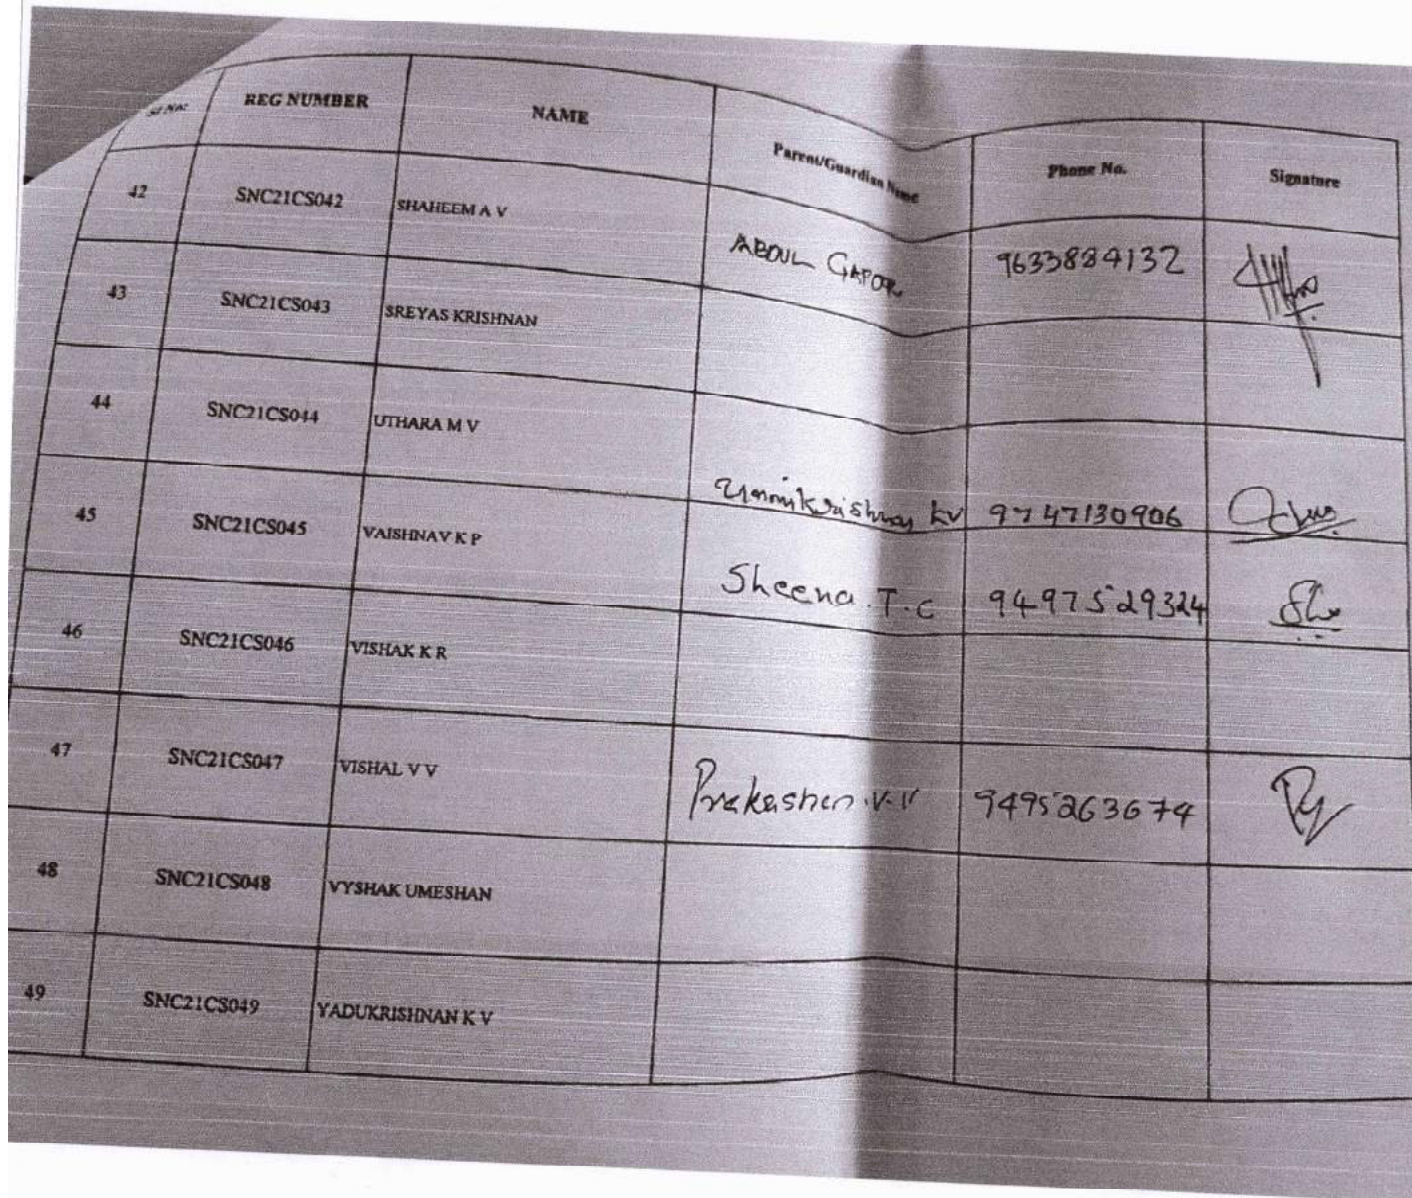 Sl No: REG NUMBER NAME Parent/Guardian Name Phone No. Signature
42 SNC21CS042 SHAHEEM A V ABDUL GAFOOR 9633884132
43 SNC21CS043 SREYAS KRISHNAN
44 SNC21CS044 UTHARA M V Unnikrishnan kv 9747130906
45 SNC21CS045 VAISHNAV K P Sheena.T.C 9497529324
46 SNC21CS046 VISHAK K R
47 SNC21CS047 VISHAL V V Prakashen.V.V 9495263674
48 SNC21CS048 VYSHAK UMESHAN
49 SNC21CS049 YADUKRISHNAN K V